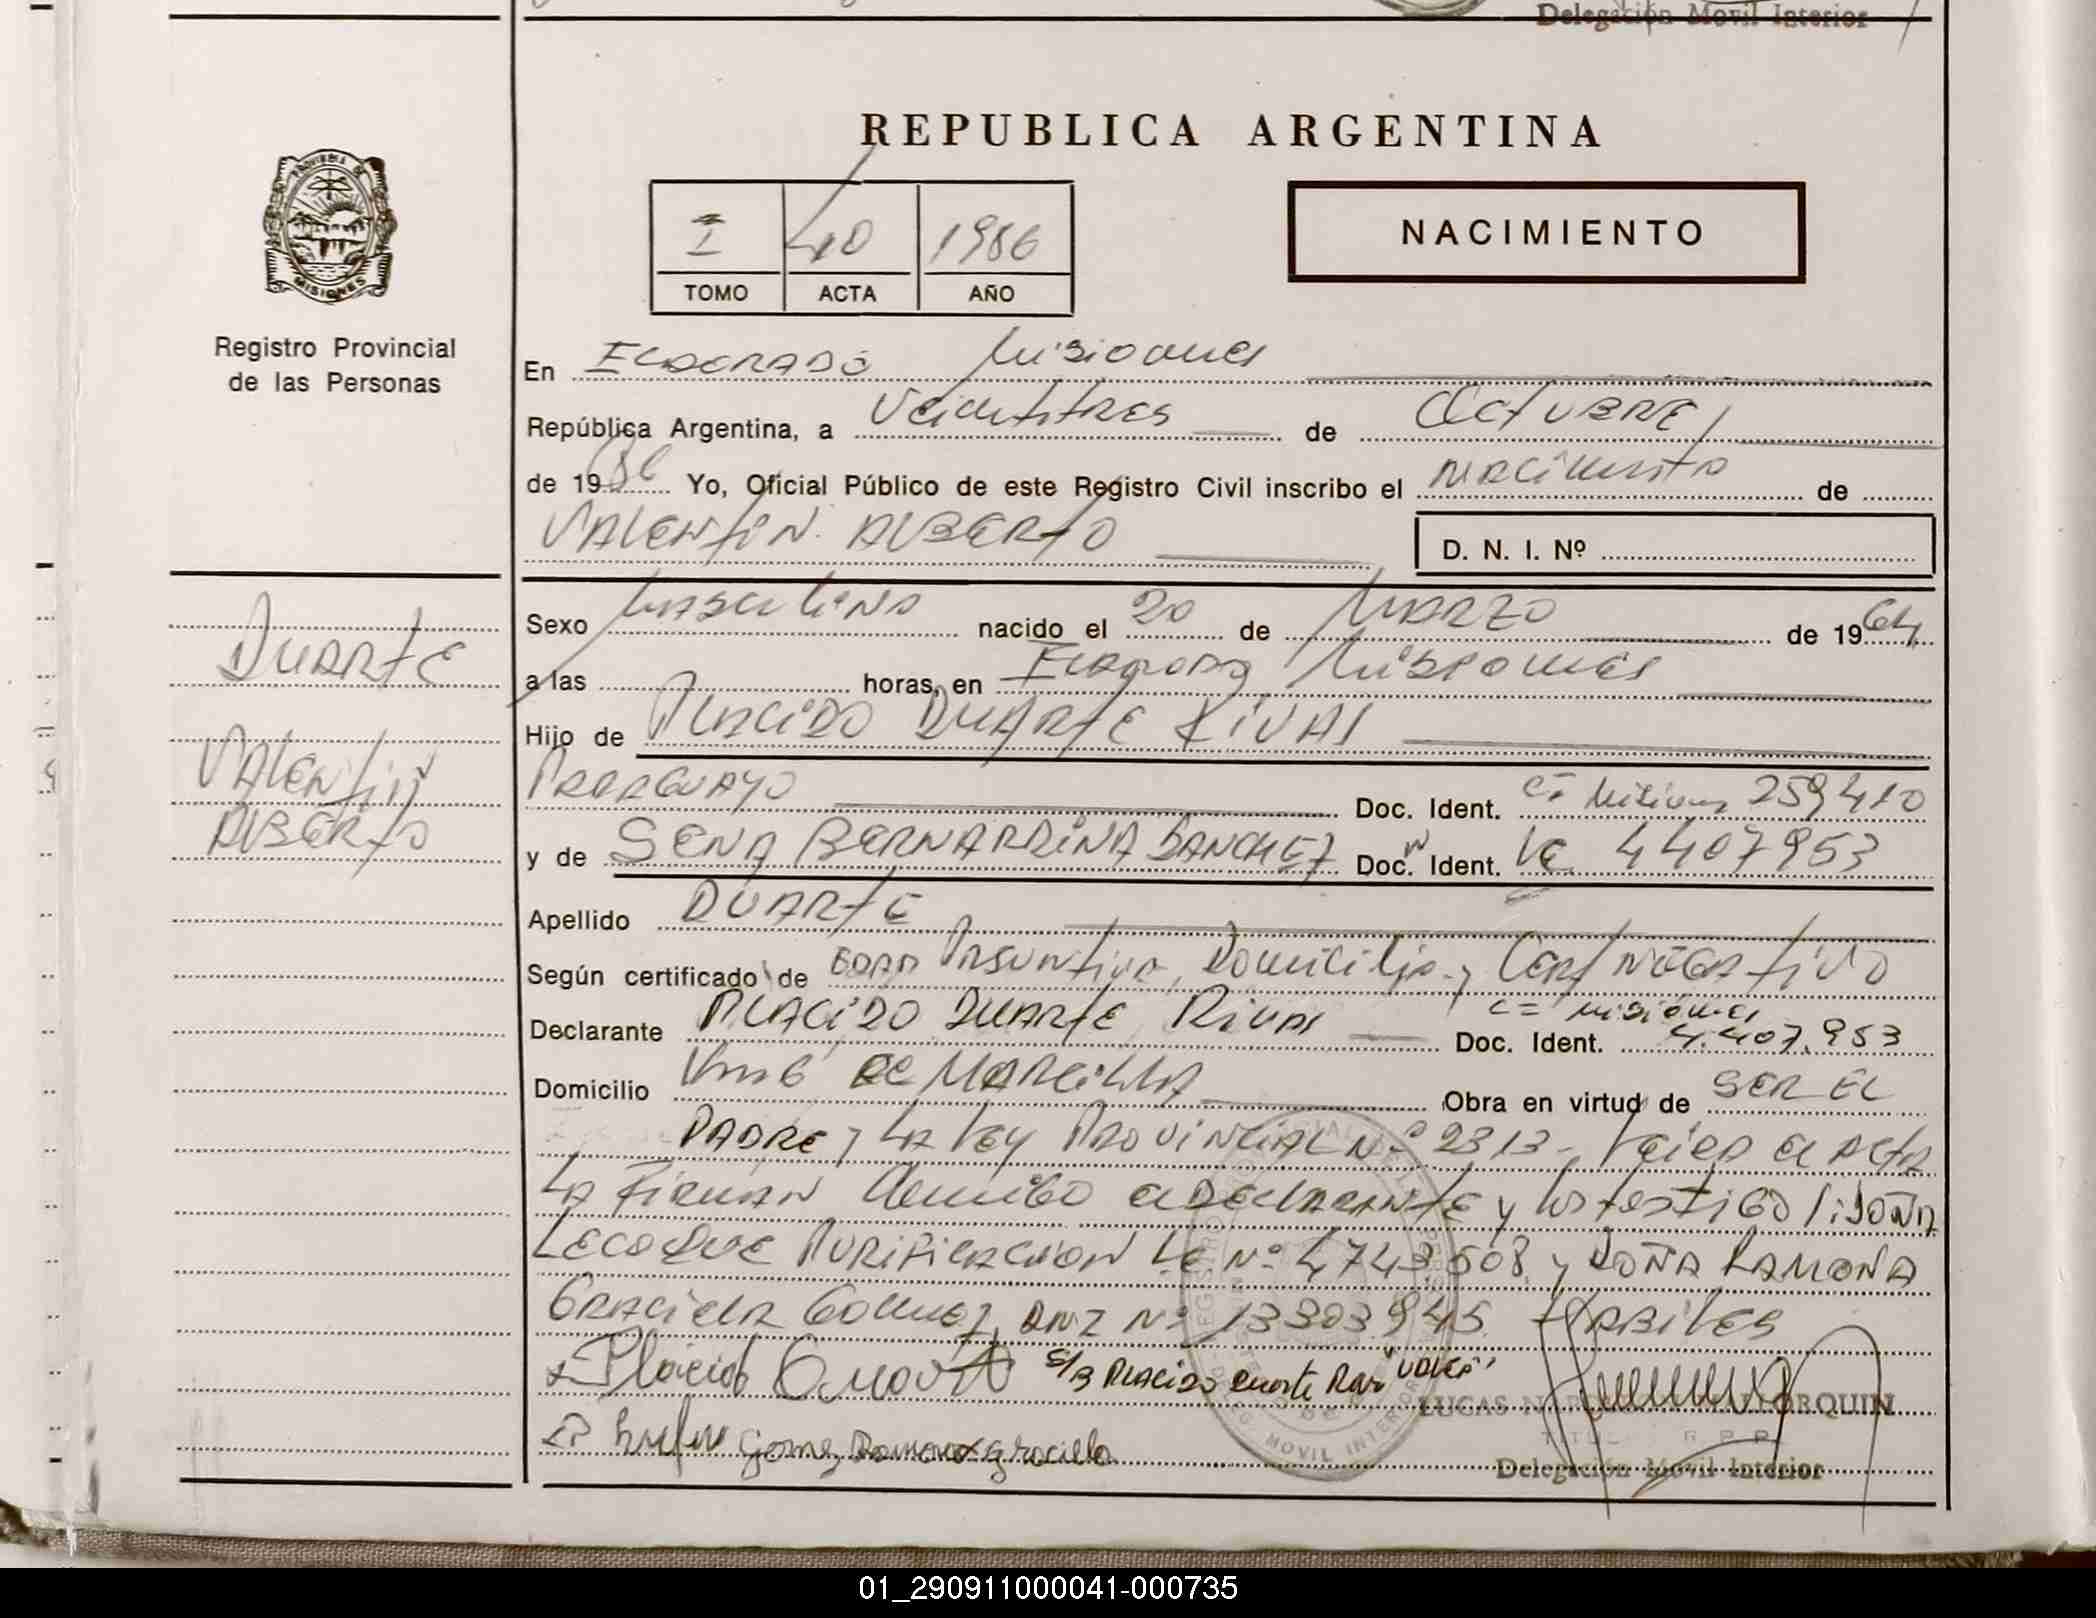 Delegación Movil Interior
REPUBLICA ARGENTINA
I 40 1986
TOMO ACTA AÑO
NACIMIENTO
PROVINCIA DE
MISIONES
Registro Provincial
de las Personas
En ELDORADO Misiones
República Argentina, a Veintitres de Octubre
de 1986 Yo, Oficial Público de este Registro Civil inscribo el nacimiento de
VALENTIN ALBERTO
D. N. I. Nº
DUARTE
VALENTIN
ALBERTO
Sexo Masculino nacido el 20 de MARZO de 1964
a las horas, en Eldorado Misiones
Hijo de PLACIDO DUARTE RIVAS
PARAGUAYO Doc. Ident. Misiones 259410
y de SENA BERNARDINA SANCHEZ Doc. Ident. 4407953
Apellido DUARTE
Según certificado de Edad Presuntiva, Domicilio y Cert Negativo
Declarante PLACIDO DUARTE Rivas Doc. Ident. C= Misiones 4.407.953
Domicilio de Obra en virtud de SER EL
PADRE y LA Ley PROVINCIAL Nº 2313 - Leida el Acta
La Firman Conmigo el DECLARANTE y los testigos: DOÑA
PURIFICACION Nº 4743608 y DOÑA RAMONA
GRACIELA GOMEZ, DNI Nº 13303945 HABILES
Placido Duarte PLACIDO Duarte "VALE"
Gomez Ramona Graciela
LUCAS
Delegación Movil Interior
01_290911000041-000735